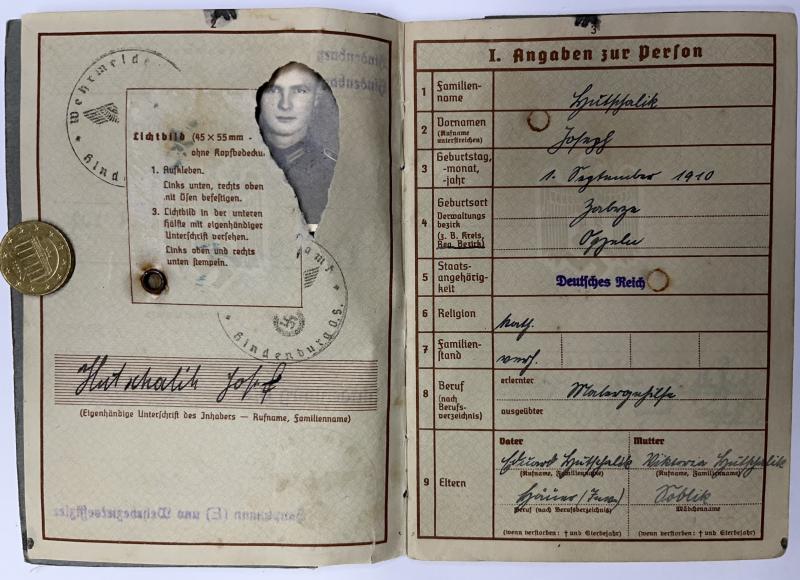 Wehrmelde
Hindenburg
Lichtbild (45 × 55 mm -
ohne Kopfbedecku
1. Aufkleben.
Links unten, rechts oben
mit Ösen befestigen.
3. Lichtbild in der unteren
Hälfte mit eigenhändiger
Unterschrift versehen.
Links oben und rechts
unten stempeln.
amt
Hindenburg O.S.
Hutschalik Josef
(Eigenhändige Unterschrift des Inhabers — Rufname, Familienname)
3
I. Angaben zur Person
1 Familien-
name
Hutschalik
2 Vornamen
(Rufname
unterstreichen)
Joseph
3 Geburtstag,
-monat,
-jahr
1. September 1910
4 Geburtsort
Verwaltungs
bezirk
(z. B. Kreis,
Reg. Bezirk)
Zabrze
Oppeln
5 Staats-
angehörig-
keit
Deutsches Reich
6 Religion
kath.
7 Familien-
stand
verh.
8 Beruf
(nach
Berufs-
verzeichnis)
erlernter
Malergehilfe
ausgeübter
9 Eltern
Vater
Eduard Hutschalik
(Rufname, Familienname)
Häuer (Inv.)
Beruf (nach Berufsverzeichnis)
(wenn verstorben: † und Sterbejahr)
Mutter
Viktoria Hutschalik
(Rufname, Familienname)
Soblik
Mädchenname
(wenn verstorben: † und Sterbejahr)